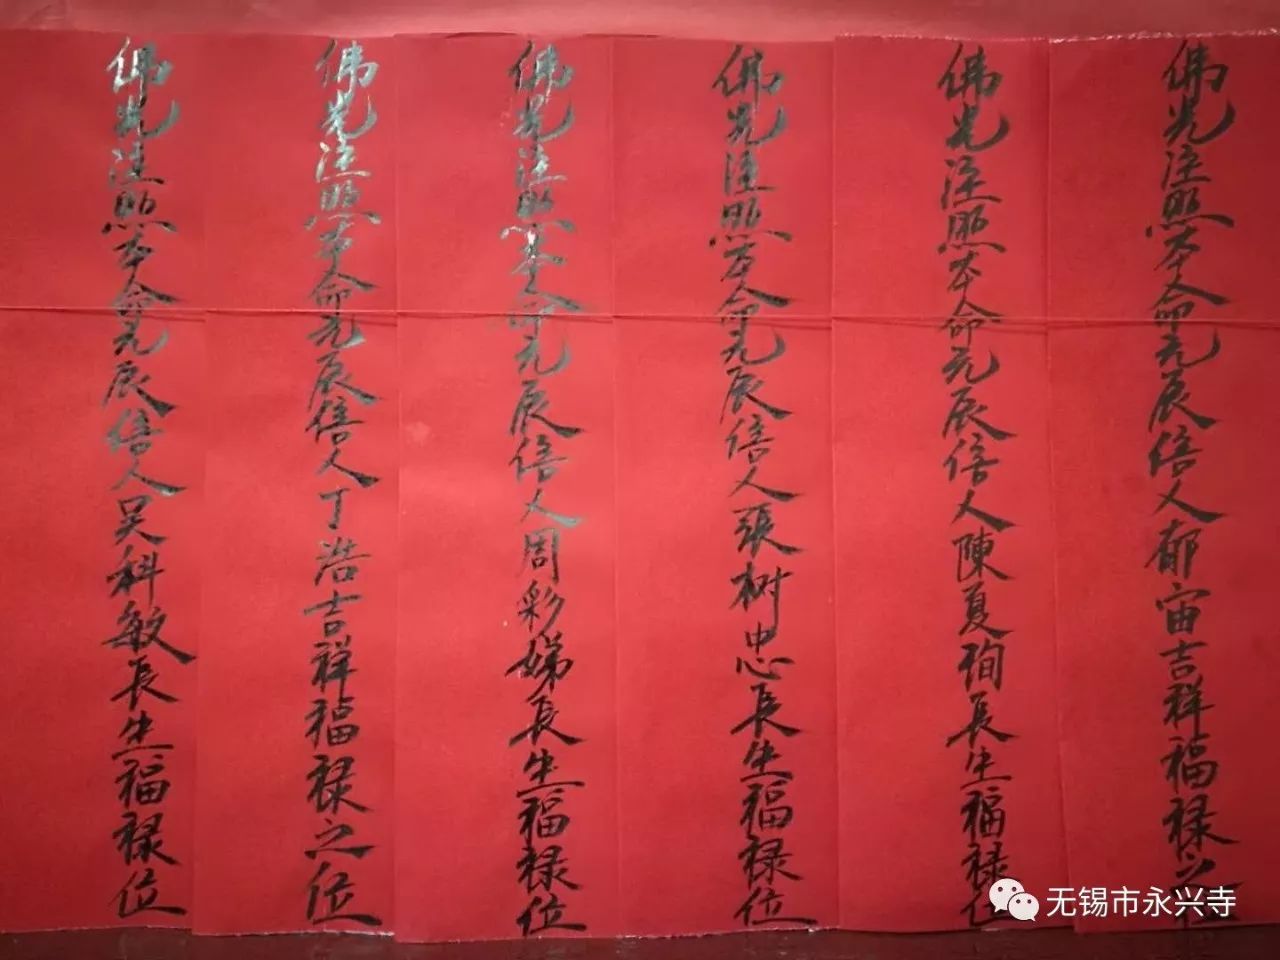 佛光注照本命元辰信人郁宙吉祥福禄之位
佛光注照本命元辰信人陳夏珣長生福禄位
佛光注照本命元辰信人張树忠長生福禄位
佛光注照本命元辰信人周彩娣長生福禄位
佛光注照本命元辰信人丁浩吉祥福禄之位
佛光注照本命元辰信人吴科敏長生福禄位
无锡市永兴寺